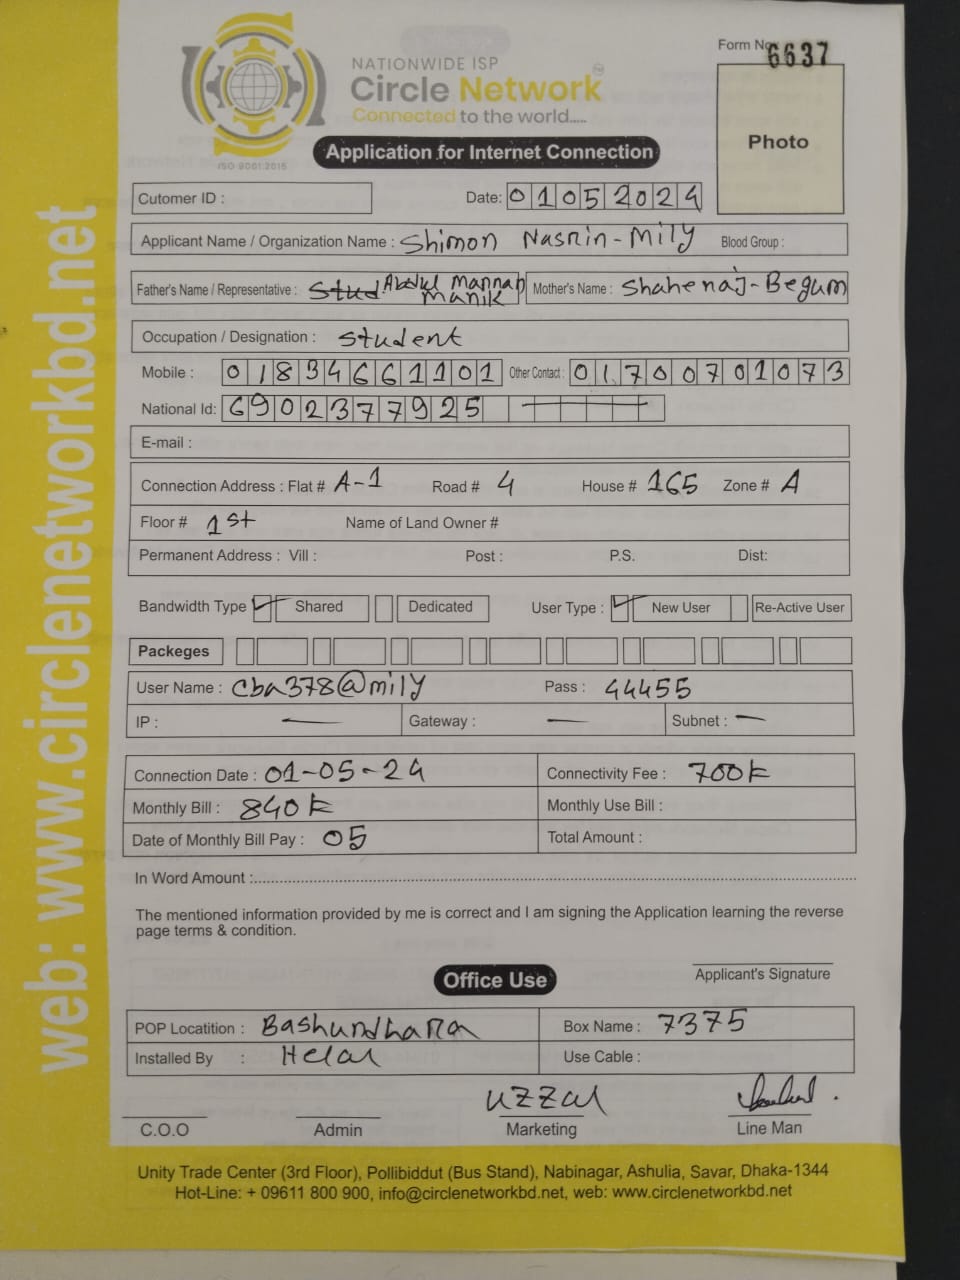 Form No. 6637
NATIONWIDE ISP
Circle Network
Connected to the world.....
ISO 9001:2015
Photo
Application for Internet Connection
Cutomer ID :
Date: 01052024
Applicant Name / Organization Name : Shimon Nasrin-Mily Blood Group :
Father's Name / Representative : Stud Abdul Mannan Manik Mother's Name : Shahenaj-Begum
Occupation / Designation : Student
Mobile : 01834661101 Other Contact : 01700701073
National Id: 6902377925
E-mail :
Connection Address : Flat # A-1 Road # 4 House # 165 Zone # A
Floor # 1st Name of Land Owner #
Permanent Address : Vill : Post : P.S. Dist:
Bandwidth Type Shared Dedicated User Type : New User Re-Active User
Packeges
User Name : cba378@mily Pass : 44455
IP : — Gateway : — Subnet : —
Connection Date : 01-05-24 Connectivity Fee : 700k
Monthly Bill : 840k Monthly Use Bill :
Date of Monthly Bill Pay : 05 Total Amount :
In Word Amount :
The mentioned information provided by me is correct and I am signing the Application learning the reverse
page terms & condition.
Office Use
Applicant's Signature
POP Locatition : Bashundhara Box Name : 7375
Installed By : Helal Use Cable :
Uzzal
C.O.O Admin Marketing Line Man
Unity Trade Center (3rd Floor), Pollibiddut (Bus Stand), Nabinagar, Ashulia, Savar, Dhaka-1344
Hot-Line: + 09611 800 900, info@circlenetworkbd.net, web: www.circlenetworkbd.net
web: www.circlenetworkbd.net